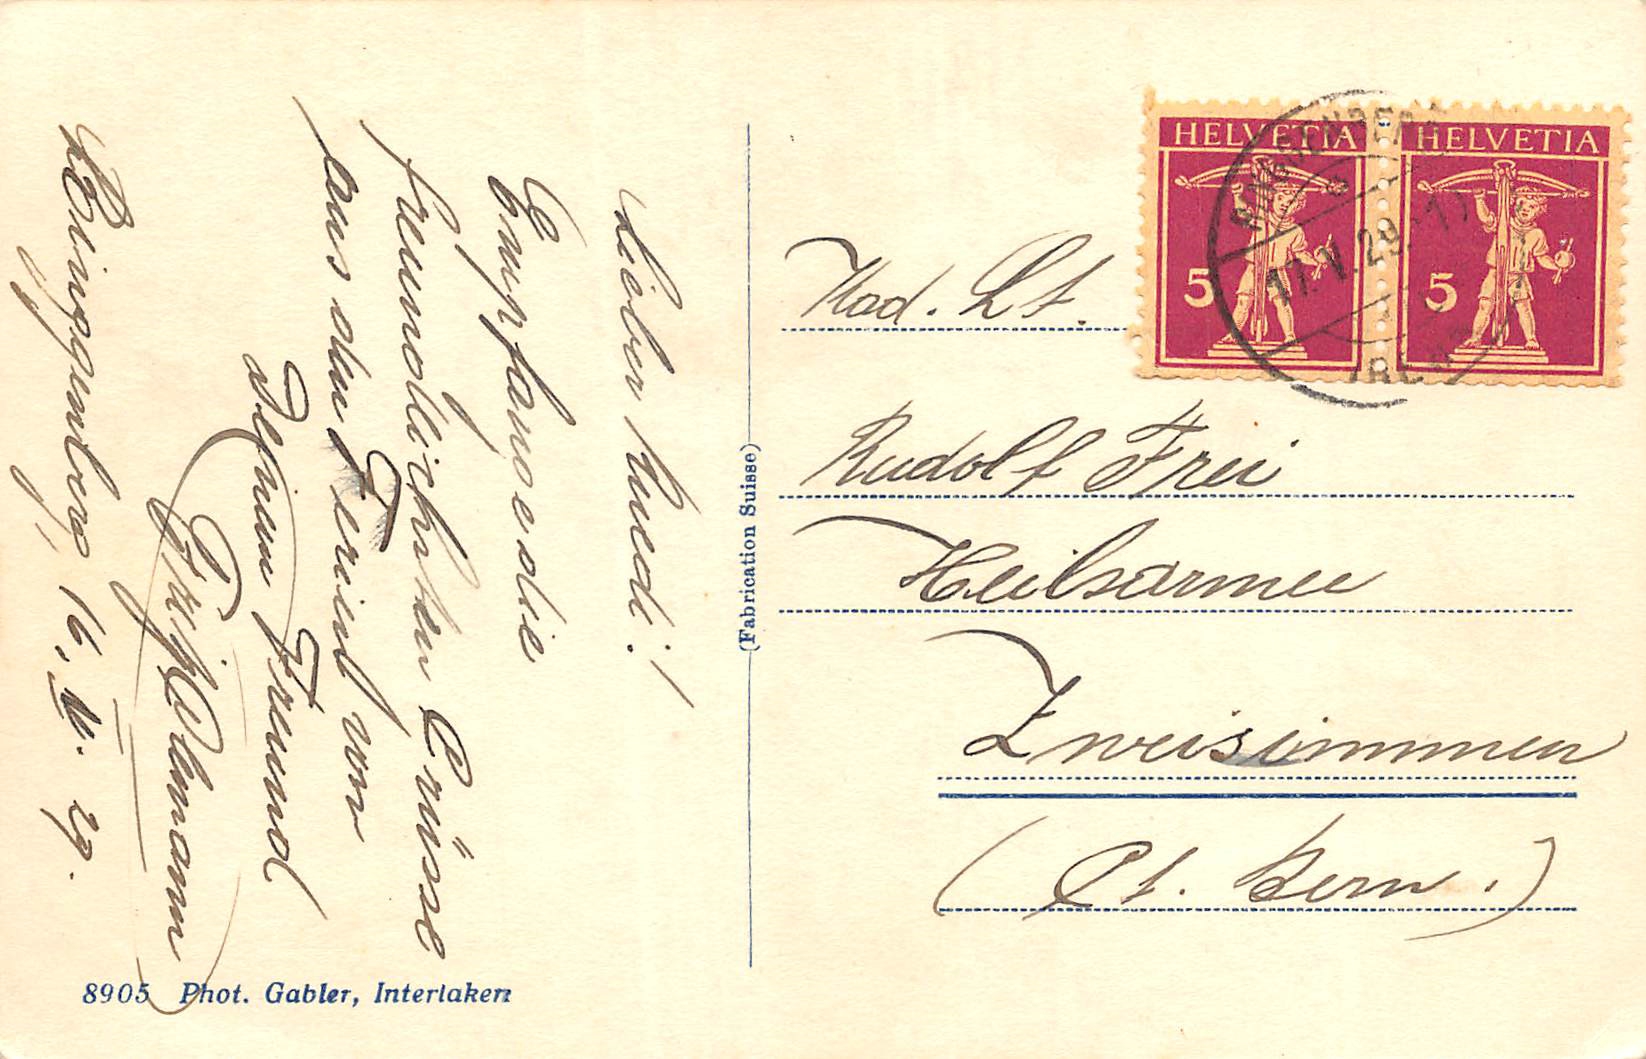 Lieber Ruedi!
Empfange die
freundlichsten Grüsse
aus dem Ferien von
Deinem Freund
Fritz Wehrmann
Ringgenberg, 16. V. 29.
8905 Phot. Gabler, Interlaken
(Fabrication Suisse)
HELVETIA HELVETIA
5 5
RINGGENBERG
17.V.29.-17
(BERN)
Kad. Lt.
Rudolf Frei
Heilsarmee
Zweisimmen
(Ct. Bern.)